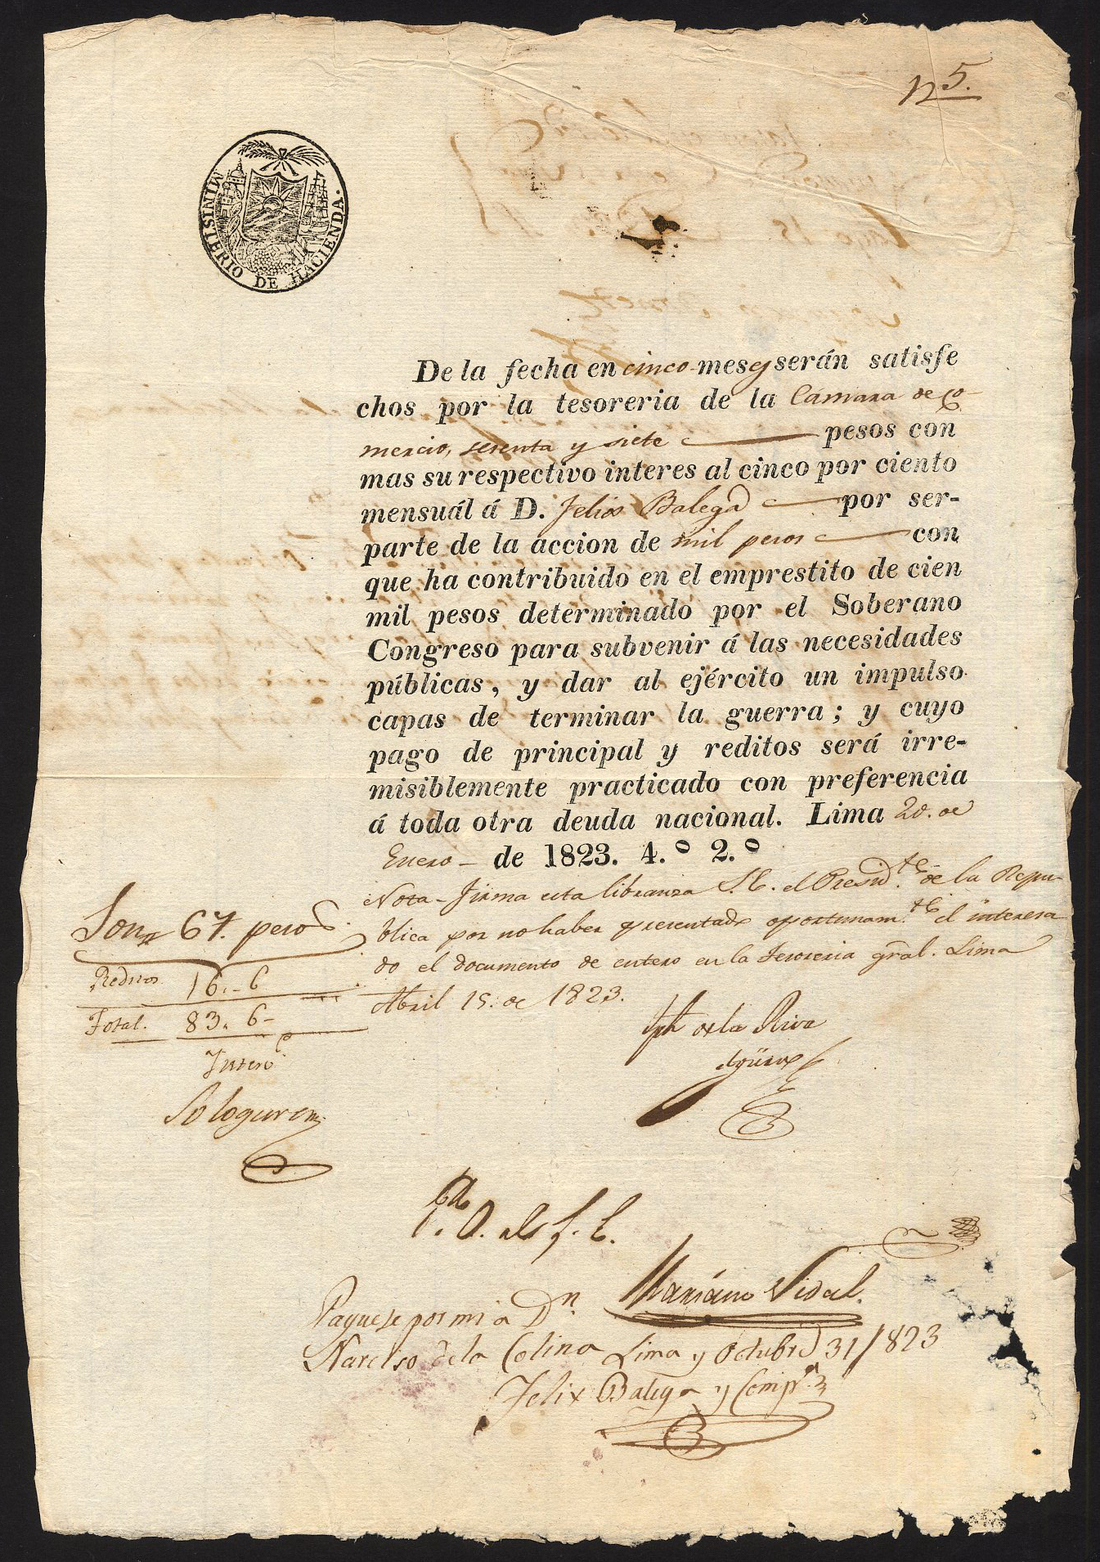 n 5.
MINISTERIO DE HACIENDA.
De la fecha en cinco meses serán satisfe
chos por la tesoreria de la Camara de Co-
mercio, sesenta y siete pesos con
mas su respectivo interes al cinco por ciento
mensuál á D. Felix Balega por ser-
parte de la accion de mil pesos con
que ha contribuido en el emprestito de cien
mil pesos determinado por el Soberano
Congreso para subvenir á las necesidades
públicas, y dar al ejército un impulso
capas de terminar la guerra; y cuyo
pago de principal y reditos será irre-
misiblemente practicado con preferencia
á toda otra deuda nacional. Lima 20. de
Enero - de 1823. 4.º 2.º
Nota - Firma esta libranza S.E. el Presid.te de la Repu-
blica por no haber presentado oportunam.te el interesa
do el documento de entero en la Tesoreria gral. Lima
Abril 15. de 1823.
Son 67. pesos
Reditos 16.-6
Total. 83. 6-
de la Riva
Agüero
Sologuren
P.O. de S.E.
Mariano Vidal.
Paguese por mi a Dn.
Narciso de la Colina Lima y Octubre 31/823
Felix Balega y Comp.a